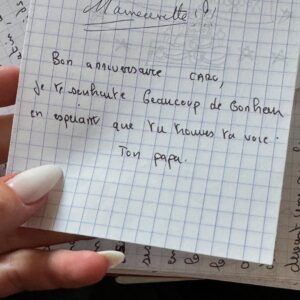 Bon anniversaire CARO,
je te souhaite beaucoup de bonheur
en espérant que tu trouves ta voie.
Ton papa.